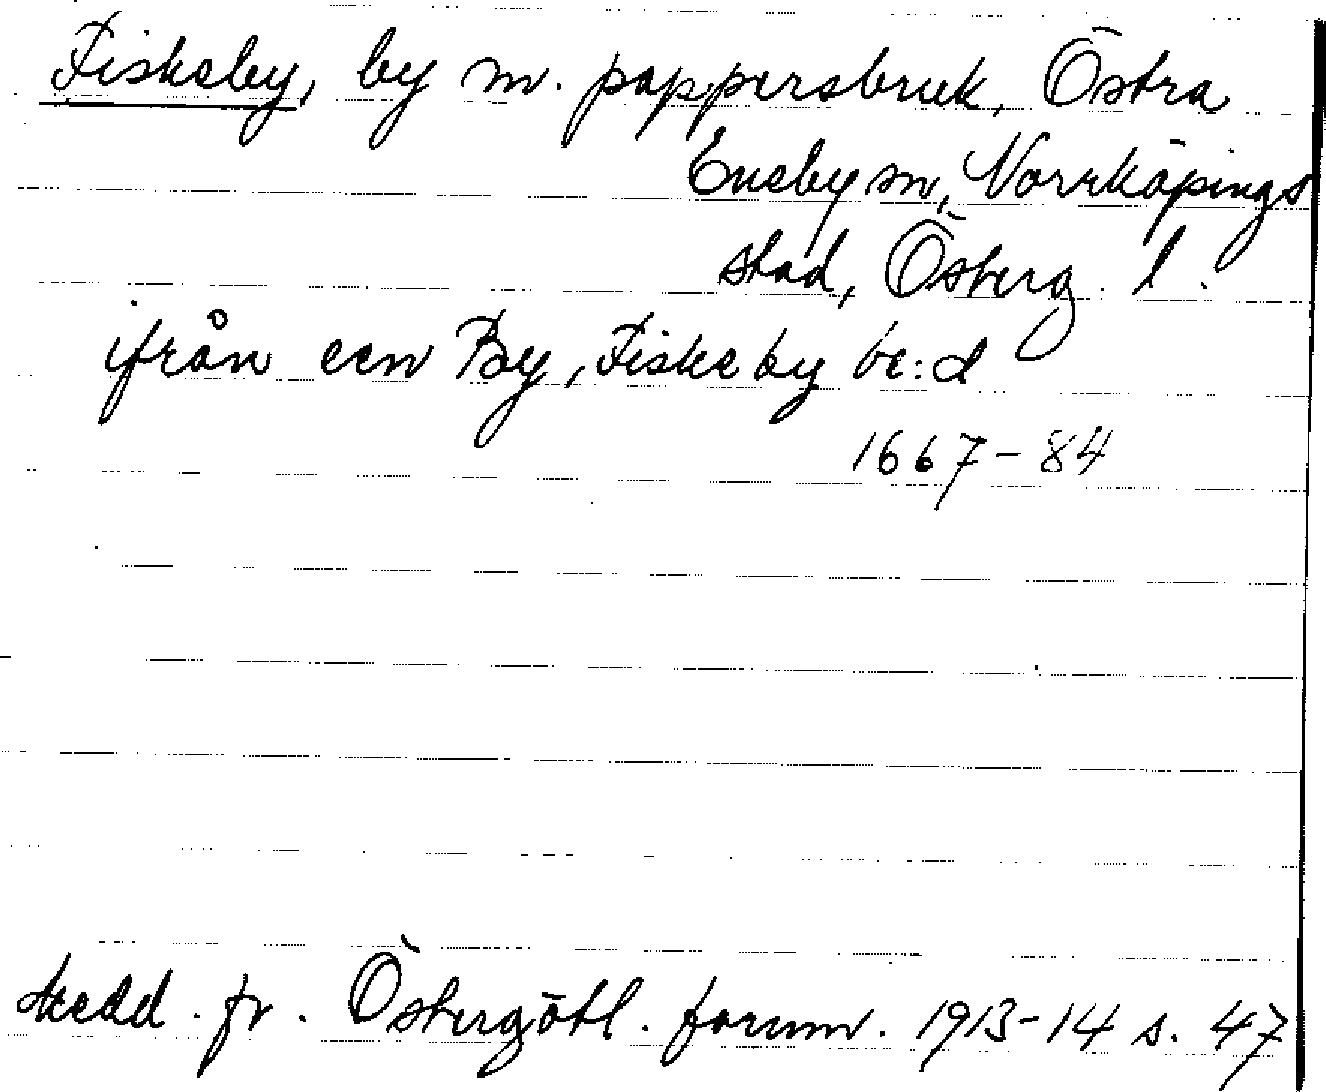 Fiskeby, by m. pappersbruk, Östra
Eneby sn, Norrköpings
stad, Österg. l.
ifrån een By, Fiskeby be:d
1667-84
Medd. fr. Östergötl. fornm. 1913-14 s. 47